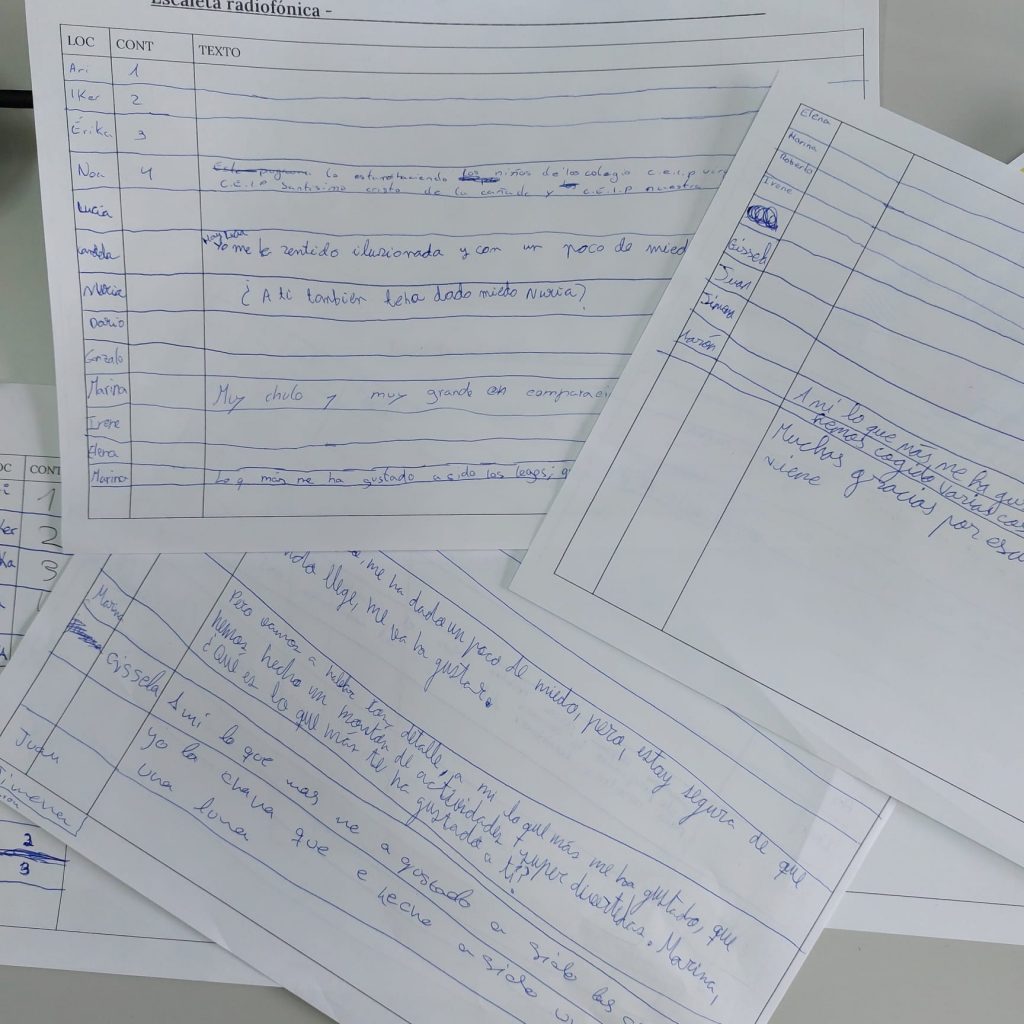 Escaleta radiofónica -
LOC CONT TEXTO
Ari 1
IKer 2
Érika 3
Noa 4 Este programa lo estan haciendo los niños de los colegio c.e.i.p
C.E.I.P Santisimo cristo de la cañada y C.E.I.P nuestra
Lucía
Yo me he sentido ilusionada y con un poco de mied
Nuria ¿A ti tambien te ha dado miedo Nuria?
Dario
Gonzalo
Marina Muy chulo y muy grande en comparaci
Irene
Elena
Marina Lo q más me ha gustado a sido los legos;
Elena
Marina
Roberto
Irene
Gissela
Juan
Jimena
Aarón
A mi lo que más me ha gus
hemos cogido varias cos
Muchas gracias por escu
viene
OC CONT
1
2
3
me ha dado un poco de miedo, pero, estoy segura de que
ndo llege, me va ha gustar.
Marina Pero vamos a hablar con detalle, a mi lo que más me ha gustado, que
hemos hecho un montón de actividades super divertidas. Marina,
¿Qué es lo que más te ha gustado a ti?
Gissela Ami lo que mas me a gustado a sido las
Juan yo la chava que e hecho a sido
una luna
Jimena
2
3